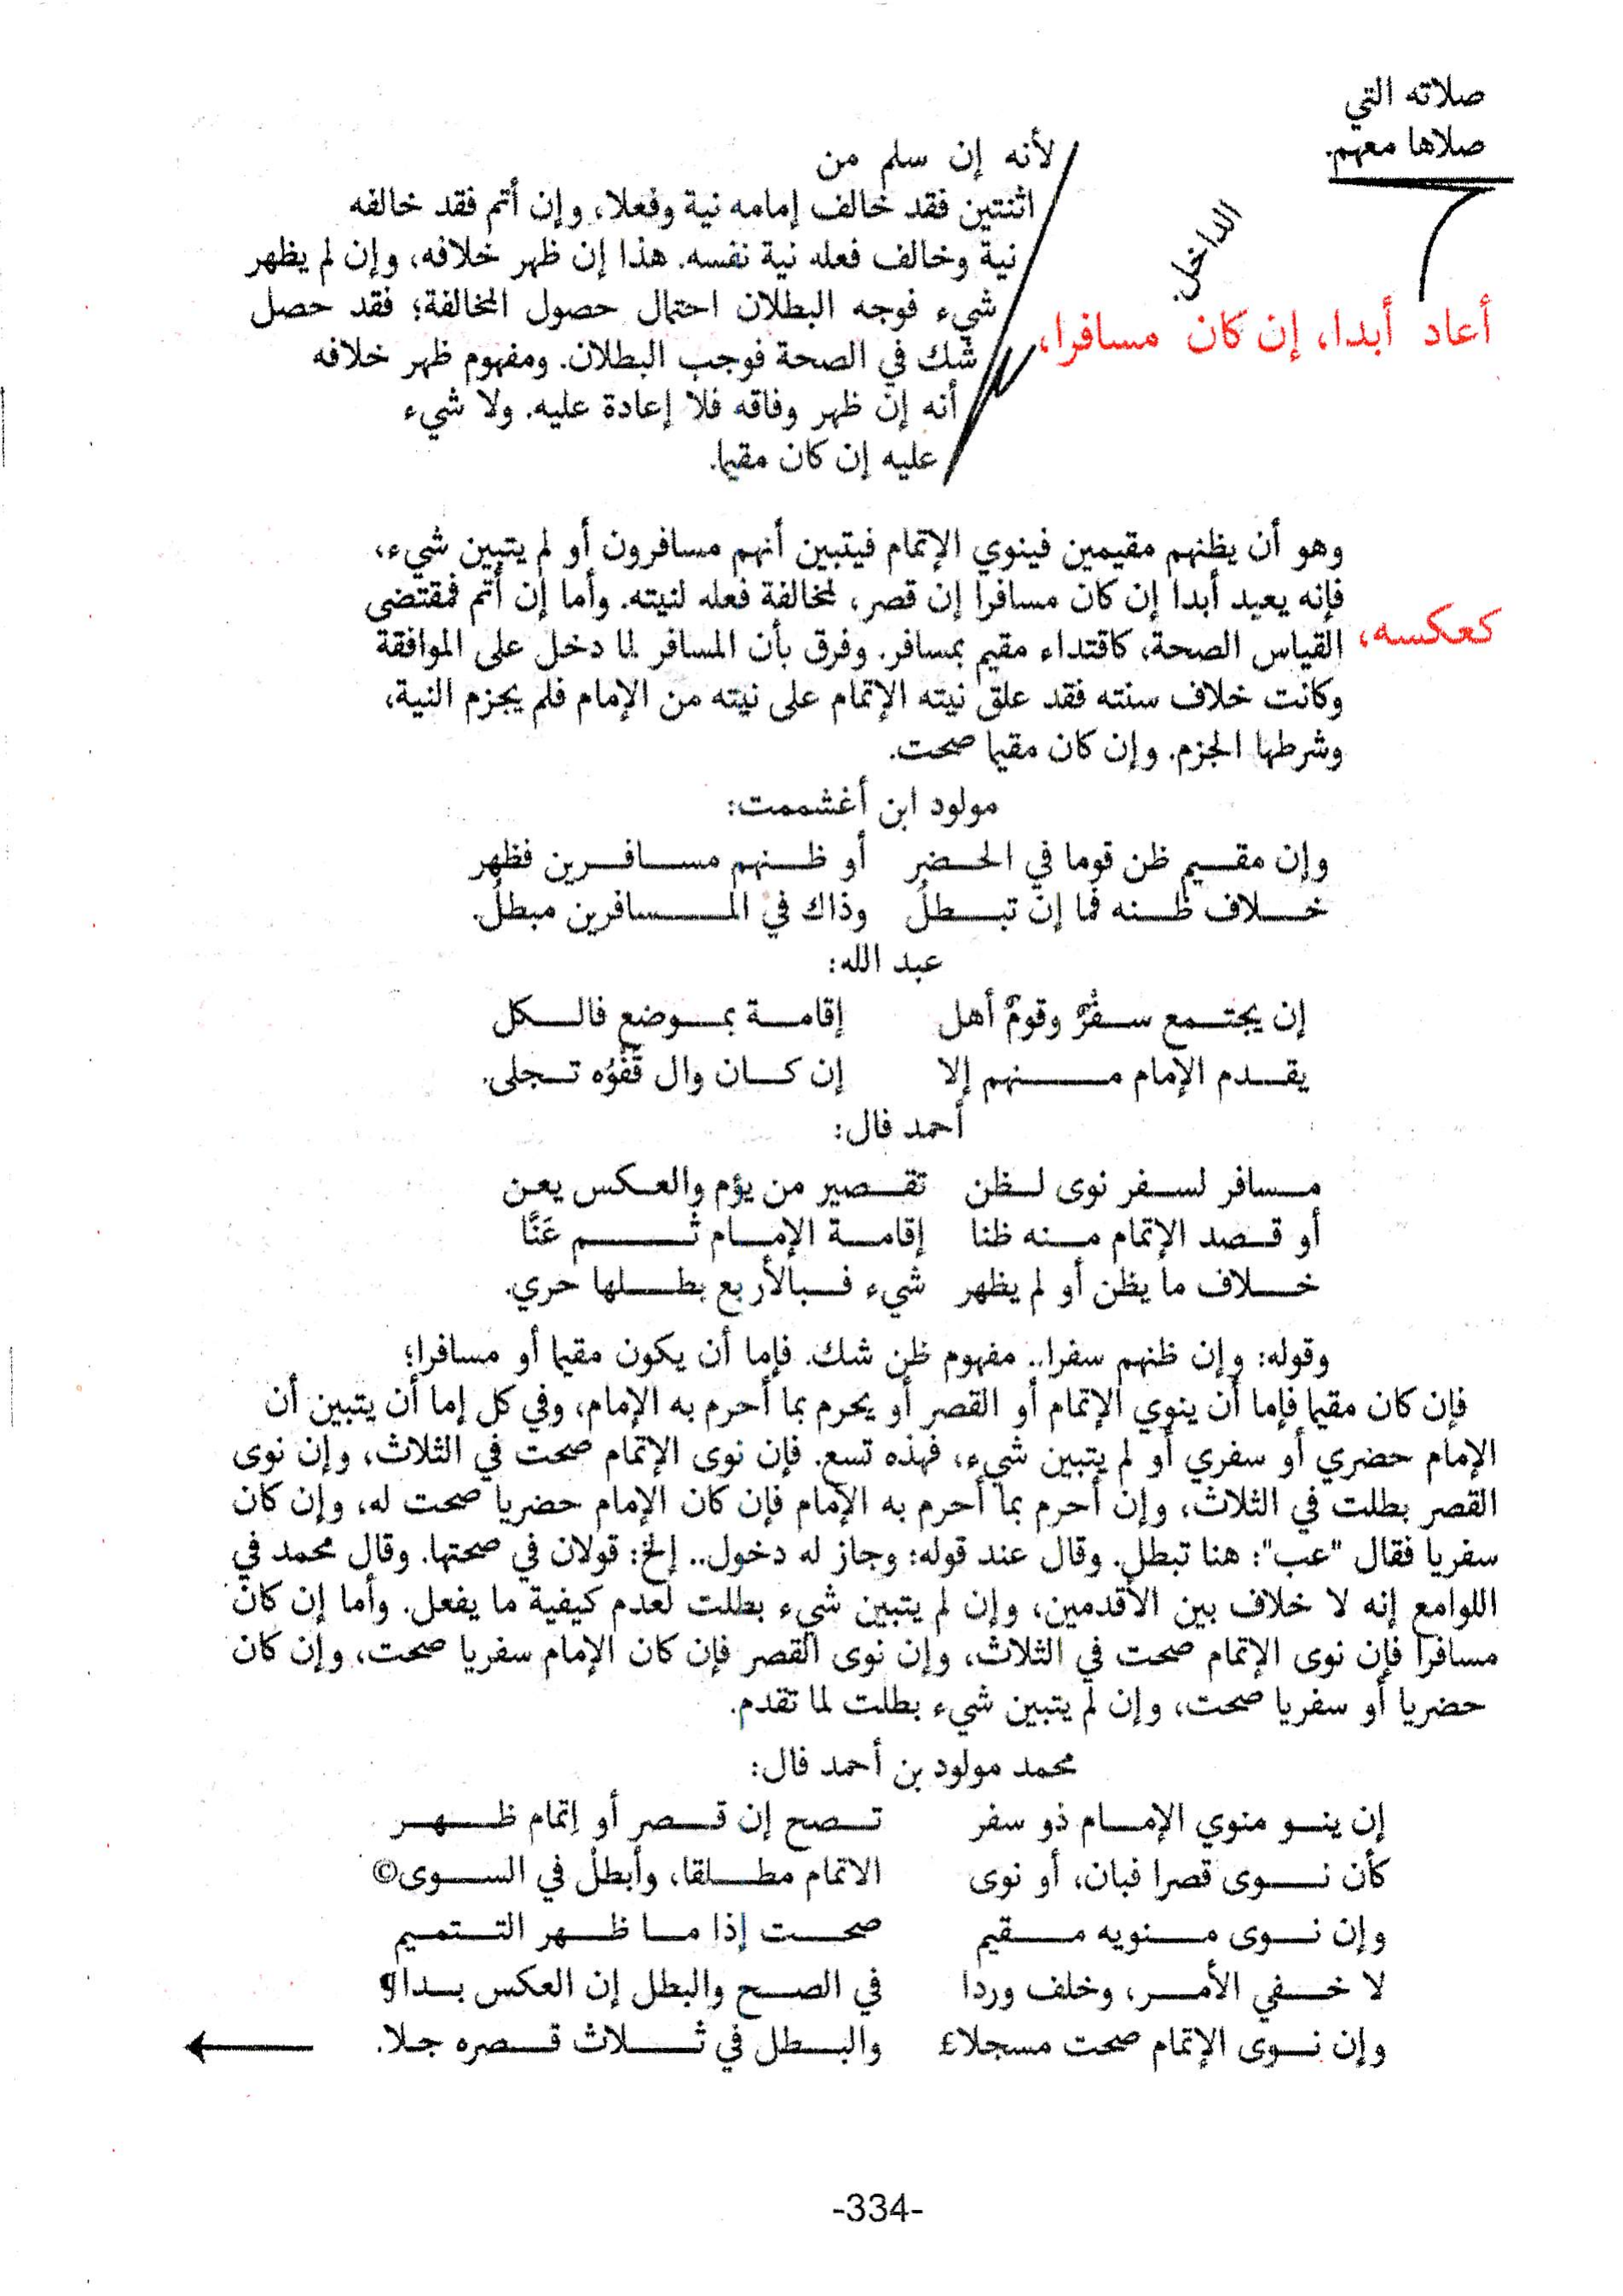 صلاته التي
صلاها معهم.
أعاد أبدا، إن كان مسافرا،
الداخل.
لأنه إن سلم من
اثنتين فقد خالف إمامه نية وفعلا، وإن أتم فقد خالفه
نية وخالف فعله نية نفسه. هذا إن ظهر خلافه، وإن لم يظهر
شيء فوجه البطلان احتمال حصول المخالفة؛ فقد حصل
شك في الصحة فوجب البطلان. ومفهوم ظهر خلافه
أنه إن ظهر وفاقه فلا إعادة عليه. ولا شيء
عليه إن كان مقيما.
كعكسه،
وهو أن يظنهم مقيمين فينوي الإتمام فيتبين أنهم مسافرون أو لم يتبين شيء،
فإنه يعيد أبدا إن كان مسافرا إن قصر، لمخالفة فعله لنيته. وأما إن أتم فمقتضى
القياس الصحة، كاقتداء مقيم بمسافر. وفرق بأن المسافر لما دخل على الموافقة
وكانت خلاف سنته فقد علق نيته الإتمام على نيته من الإمام فلم يجزم النية،
وشرطها الجزم. وإن كان مقيما صحت.
مولود ابن أغشممت:
وإن مقيم ظن قوما في الحضر أو ظنهم مسافرين فظهر
خلاف ظنه فما إن تبطلُ وذاك في المسافرين مبطلُ.
عبد الله:
إن يجتمع سفْرٌ وقومٌ أهل إقامة بموضع فالكل
يقدم الإمام منهم إلا إن كان وال قَفْوُه تجلى.
أحمد فال:
مسافر لسفر نوى لظن تقصير من يؤم والعكس يعن
أو قصد الإتمام منه ظنا إقامة الإمام ثم عَنَّا
خلاف ما يظن أو لم يظهر شيء فبالأربع بطلها حري.
وقوله: وإن ظنهم سفرا.. مفهوم ظن شك. فإما أن يكون مقيما أو مسافرا؛
فإن كان مقيما فإما أن ينوي الإتمام أو القصر أو يحرم بما أحرم به الإمام، وفي كل إما أن يتبين أن
الإمام حضري أو سفري أو لم يتبين شيء، فهذه تسع. فإن نوى الإتمام صحت في الثلاث، وإن نوى
القصر بطلت في الثلاث، وإن أحرم بما أحرم به الإمام فإن كان الإمام حضريا صحت له، وإن كان
سفريا فقال "عب": هنا تبطل. وقال عند قوله: وجاز له دخول.. إلخ: قولان في صحتها. وقال محمد في
اللوامع إنه لا خلاف بين الأقدمين، وإن لم يتبين شيء بطلت لعدم كيفية ما يفعل. وأما إن كان
مسافرا فإن نوى الإتمام صحت في الثلاث، وإن نوى القصر فإن كان الإمام سفريا صحت، وإن كان
حضريا أو سفريا صحت، وإن لم يتبين شيء بطلت لما تقدم.
محمد مولود بن أحمد فال:
إن ينو منوي الإمام ذو سفر تصح إن قصر أو إتمام ظهر
كأن نوى قصرا فبان، أو نوى الاتمام مطلقا، وأبطلْ في السوى©
وإن نوى منويه مقيم صحت إذا ما ظهر التتميم
لا خفي الأمر، وخلف وردا في الصح والبطل إن العكس بدا
وإن نوى الإتمام صحت مسجلا والبطل في ثلاث قصره جلا.
-334-